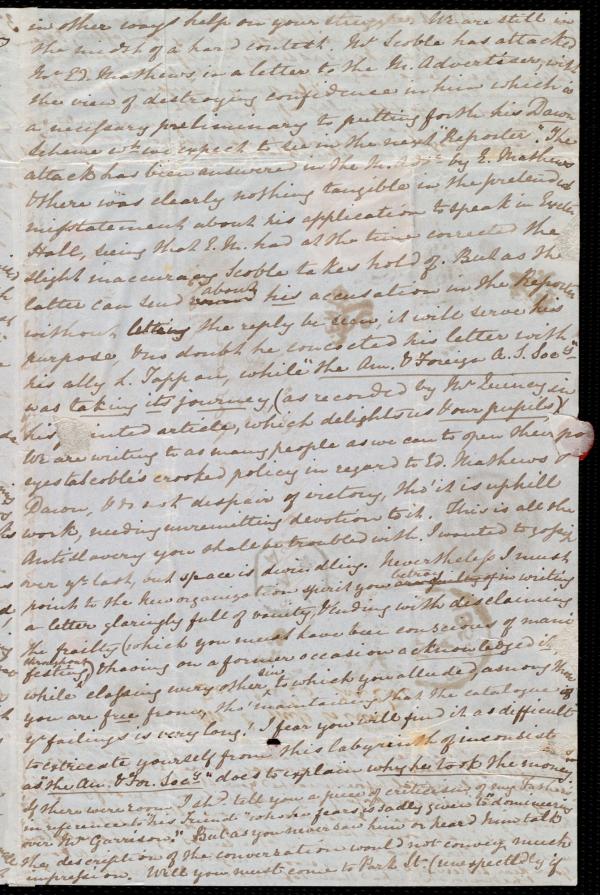 in other ways help on your struggles. We are still in
the midst of a hard contest. Mr Scoble has attacked
Mr Ed. Mathews, in a letter to the M. Advertiser, with
the view of destroying confidence in him which is
a necessary preliminary to putting forth his Dawn
scheme wh we expect to see in the next "Reporter". The
attack has been answered in the M. Adr by E. Mathews
& there was clearly nothing tangible in the pretended
misstatement about his application to speak in Exeter
Hall, seeing that E. M. had at the time corrected the
slight inaccuracy Scoble takes hold of. But as the
latter can send about his accusation in the Reporter
without letting the reply be seen, it will serve his
purpose, & no doubt he concocted his letter with
his ally L. Tappan, while "the Am. & Foreign A. S. Socy"
was taking its journey, (as recorded by Mr Quincy in
his printed article, which delights us & our pupils)
We are writing to as many people as we can to open their
eyes to Scoble's crooked policy in regard to Ed. Mathews &
Dawn, & do not despair of victory, tho' it is uphill
work, needing unremitting devotion to it. This is all the
Antislavery you shall be troubled with, I wanted to
over yr last, but space is dwindling. Nevertheless I must
point to the New organization spirit you betray in writing
a letter glaringly full of vanity, & ending with disclaiming
the frailty (which you must have been conscious of mani
festing throughout) & having on a former occasion acknowledged it,
while classing every other sin to which you alluded among them
you are free from, tho' "maintaining that the catalogue of
yr failings is very long". I fear you will find it as difficult
to extricate yourself from this labyrinth of inconsist
as "the Am. & For. Socy" does to explain why he took the money.
If there were room I shd tell you a piece of criticism of my Father
in reference to "his Friend" who he fears is sadly given to domineering
over Mr Garrison." But as you never saw him or heard him talk
the description of the conversation would not convey much
impression. Will you must come to Park St (unexpectedly if